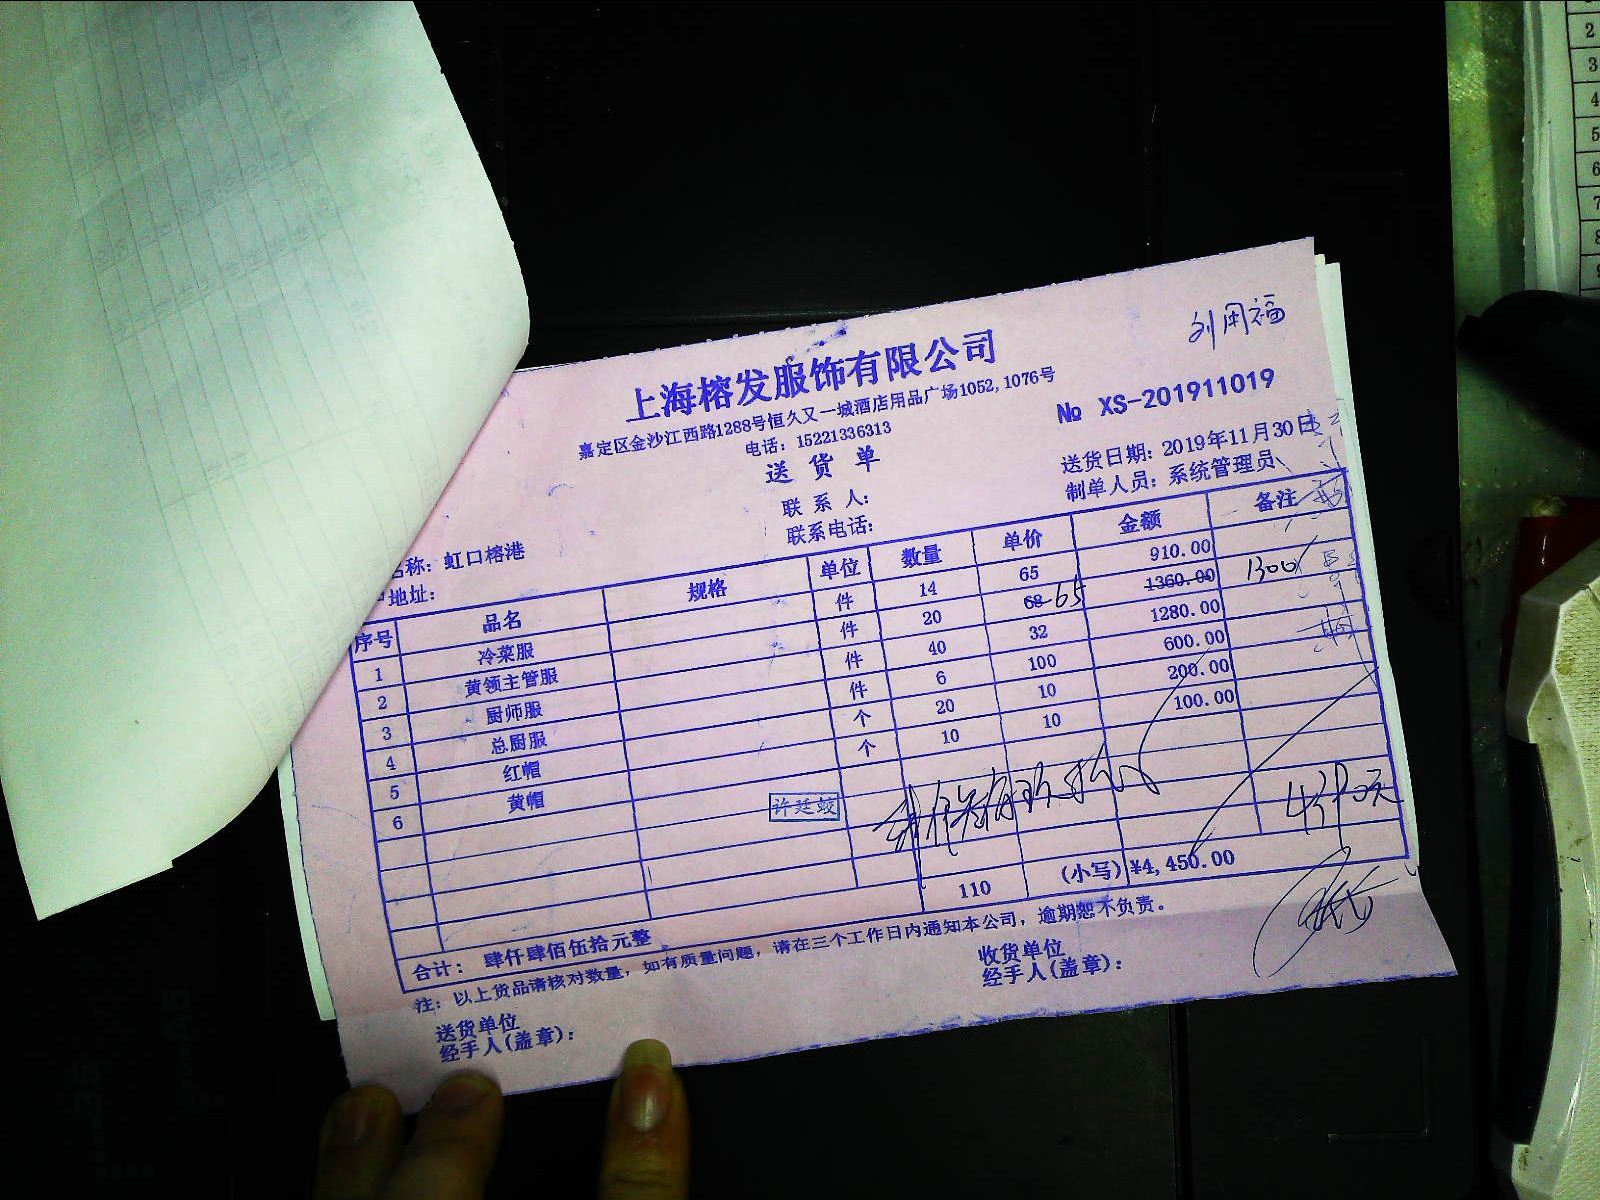 刘周福
上海榕发服饰有限公司
嘉定区金沙江西路1288号恒久又一城酒店用品广场1052, 1076号
电话: 15221336313
№ XS-201911019
送货单
送货日期: 2019年11月30日
联系人:
制单人员: 系统管理员
联系电话:
名称: 虹口榕港
地址:
序号 品名 规格 单位 数量 单价 金额 备注
1 冷菜服 件 14 65 910.00
2 黄领主管服 件 20 68 65 1360.00 1300
3 厨师服 件 40 32 1280.00
4 总厨服 件 6 100 600.00
5 红帽 个 20 10 200.00
6 黄帽 个 10 10 100.00
许廷蛟
4390元
合计: 肆仟肆佰伍拾元整 110 (小写) ¥4,450.00
注: 以上货品请核对数量, 如有质量问题, 请在三个工作日内通知本公司, 逾期恕不负责。
送货单位
经手人(盖章):
收货单位
经手人(盖章):
2
3
4
5
6
7
8